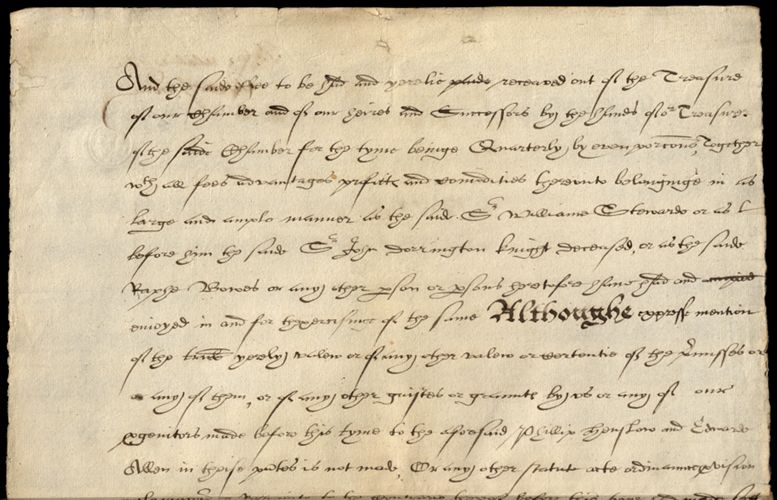 And the saide ffee to be had and yerelie receaved out of the Treasure
of our Chamber and of our heires and Successors by the hands of or Treasurer
of the saide Chamber for the tyme beinge Quarterly by even porcons, Together
wth all fees advantages profitts and comodities therevnto belonginge in as
large and ample manner as the said Sr Williame Stewarde or as
before him the saide Sr John Dorrington knight deceased, or as the saide
Raphe Bowes or any other pson or psons heretofore have had and
enioyed in and for thexercisinge of the same Althoughe expresse mention
of the yerely valew or of any other valew or certentie of the pmisses or
any of them, or of any other guiftes or graunts by vs or any of our
pgenitors made before this tyme to the aforesaid Phillip Henslow and Edward
Allen in theise pnts is not made, Or any other statute acte ordinance pvision